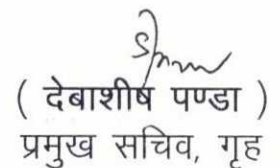 ( देबाशीष पण्डा )
प्रमुख सचिव, गृह